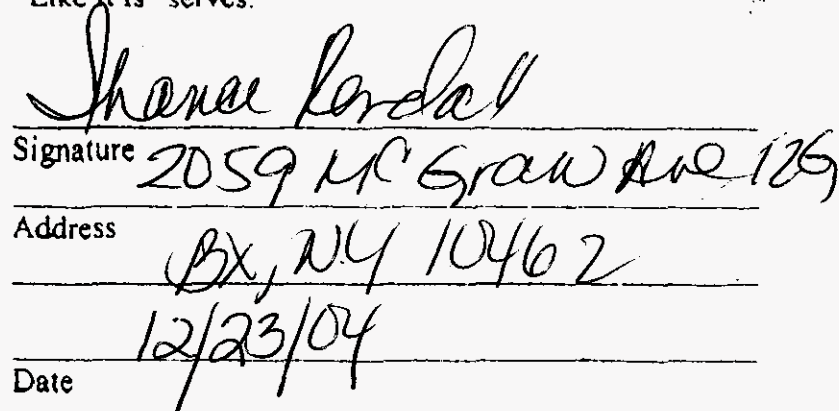 "Like it is" serves.
Shanae Kendall
Signature
2059 McGraw Ave 12G
Address
BX, NY 10462
12/23/04
Date